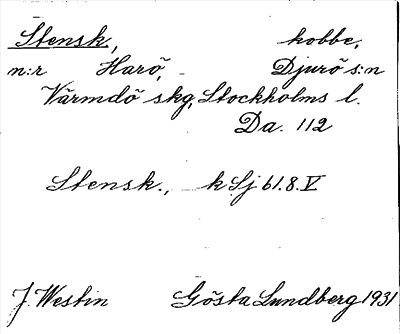 Stensk., kobbe,
n:r Harö, Djurö s:n
Värmdö skg, Stockholms l.
Da. 112
Stensk., k Sj 61.8.V
J. Westin Gösta Lundberg 1931